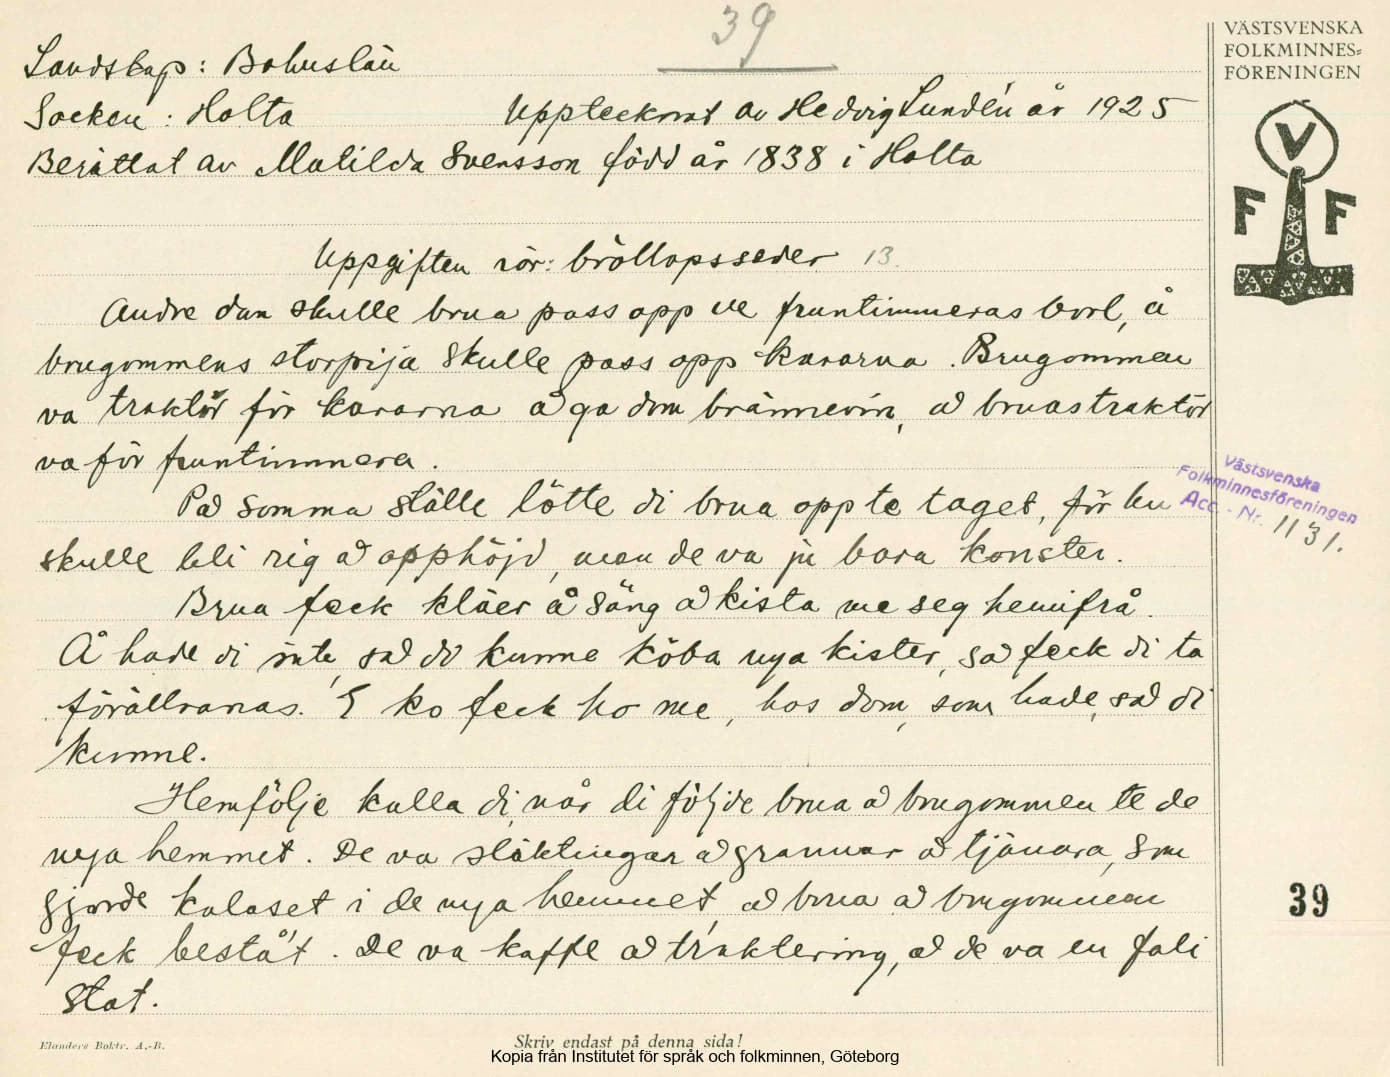 39
VÄSTSVENSKA
FOLKMINNES=
FÖRENINGEN
Landskap: Bohuslän
Socken: Holta Upptecknat av Hedvig Lundén år 1925
Berättat av Matilda Svensson född år 1838 i Holta
V
F F
Uppgiften rör: bröllopsseder 13.
Andre dan skulle brua pass opp ve fruntimmeras borl, å
brugommens storpija skulle pass opp kararna. Brugommen
va traktör för kararna å ga dom brännevin, å bruastraktör
va för fruntimmera.
På somma ställe lötte di brua opp te taget, för hu
skulle bli rig å opphöjd, men de va ju bara konster.
Brua feck kläer å säng å kista me seg hemifrå.
Å hade di inte, så di kunne köba nya kister, så feck di ta
förällranas. E ko feck ho me, hos dom, som hade, så di
kunne.
Hemfölje kalla di, når di följde brua å brugommen te de
nya hemmet. De va släktingar å grannar å tjänara, som
gjorde kalaset i de nya hemmet, å brua å brugommen
feck bestå't. De va kaffe å traktering, å de va en fali
stat.
Västsvenska
Folkminnesföreningen
Acc. - Nr. 1131.
39
Elanders Boktr. A.-B.
Skriv endast på denna sida!
Kopia från Institutet för språk och folkminnen, Göteborg